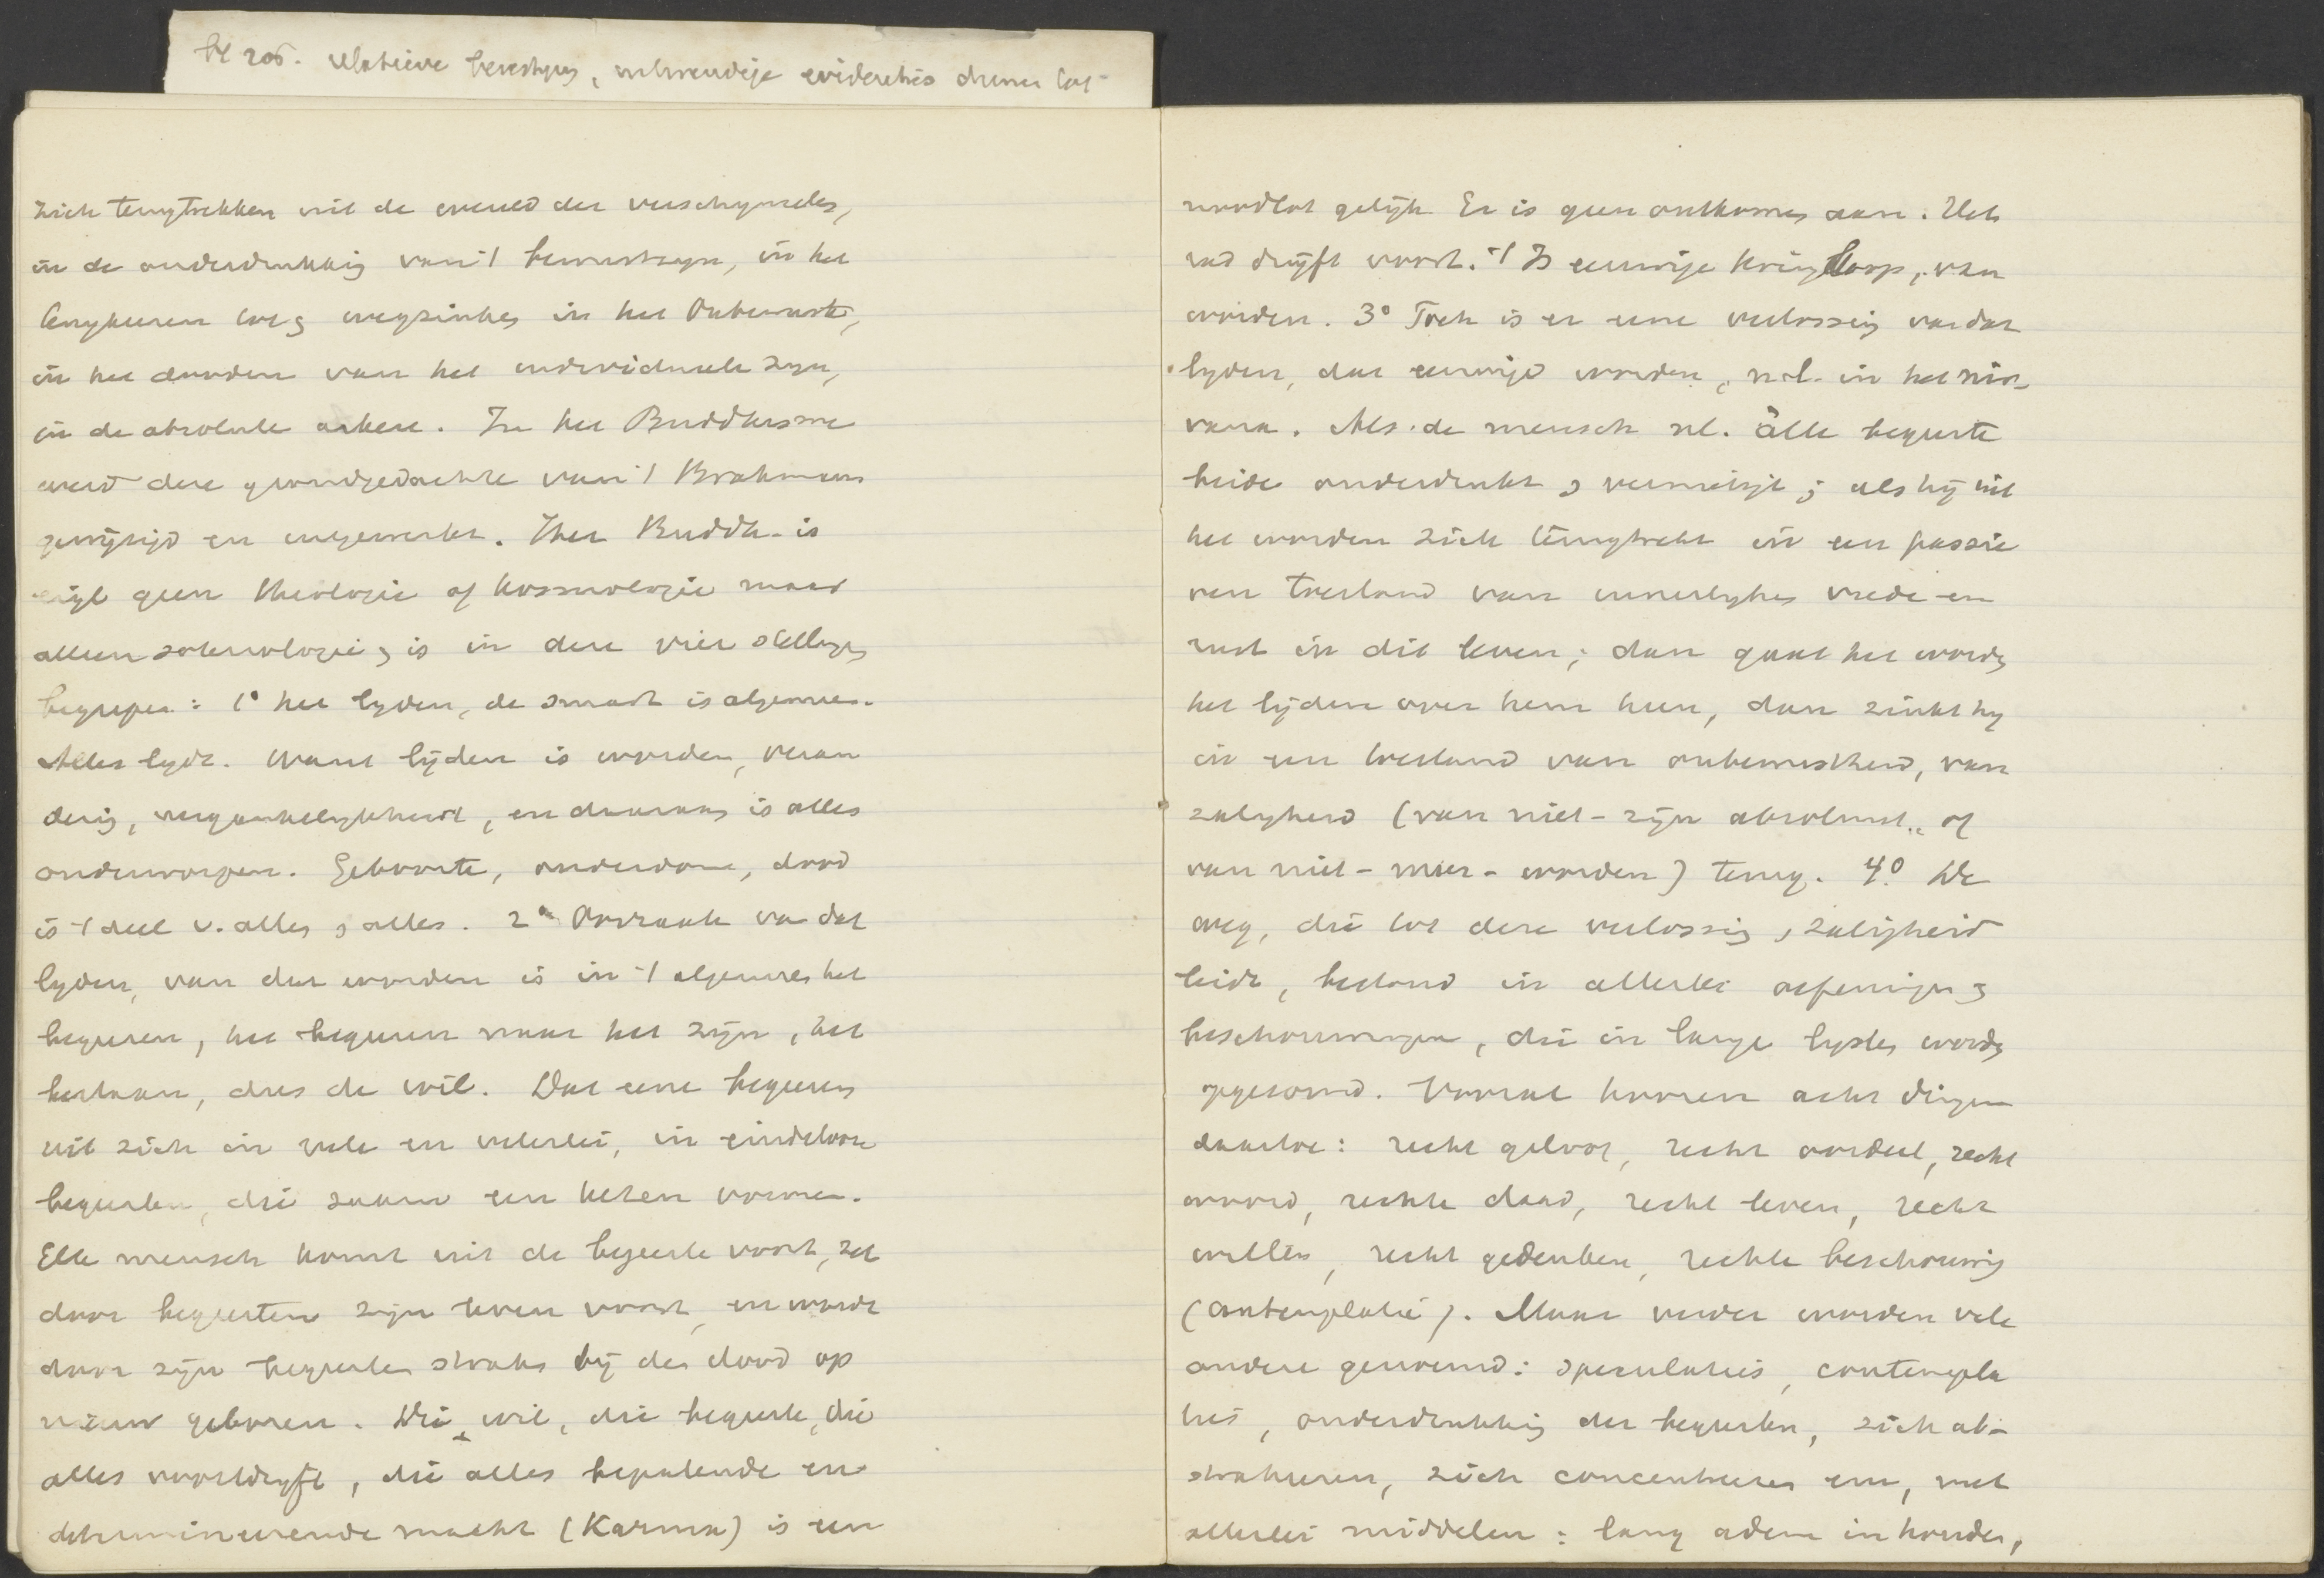 bl 205. relatieve
zich terugtrekken uit de wereld der verschynselen,
in de onderdrukking van 't bewustzyn, in het
terugkeeren tot & wegzinken in het Onbewuste,
in het dooden van het individueele zyn,
in de absolute askese. In het Buddhisme
werd deze grondgedachte van 't Brahmanis
gewijzigd en uitgewerkt. Het Buddh. is
eigl geen theologie of kosmologie maar
alleen soteriologie & is in deze vier stellingen
begrepen: 1° het lyden, de smart is algemeen.
Alles lydt. Want lijden is worden, veran
dering, vergankelykheid, en daaraan is alles
onderworpen. Geboorte, ouderdom, dood
is 't deel v. alles & allen. 2° Oorzaak van dat
lyden, van dat worden is in 't algemeen het
begeeren, het begeeren naar het zijn, het
bestaan, dus de wil. Dat eene begeeren
uit zich in vele en velerlei, in eindelooze
begeerten, die saam een keten vormen.
Elke mensch komt uit de begeerte voort, zet
door begeerten zijn leven voort, en wordt
door zijn begeerten straks bij den dood op
nieuw geboren. Die wil, die begeerte, die
alles voortdryft, die alles bepalende en
determineerende macht (Karma) is een
noodlot gelijk. Er is geen ontkomen aan. Het
rad drijft voort. 't Is eeuwige kringloop, van
worden. 3° Toch is er eene verlossing van dat
lyden, dat eeuwige worden, n.l. in het nir-
vana. Als de mensch nl. alle begeerte
beide onderdrukt & vernietigt; als hij uit
het worden zich terugtrekt in een passie
ven toestand van innerlyken vrede en
rust in dit leven; dan gaat het worden
het lijden over hem heen, dan zinkt hy
in een toestand van onbewustheid, van
zaligheid (van niet-zijn absoluut of
van niet-meer-worden) terug. 4° De
weg, die tot deze verlossing & zaligheid
leidt, bestaat in allerlei oefeningen &
beschouwingen, die in lange lysten worden
opgesomd. Vooral hooren acht dingen
daartoe: recht geloof, recht oordeel, recht
woord, rechte daad, recht leven, recht
willen, recht gedenken, rechte beschouwing
(contemplatie). Maar verder worden vele
andere genoemd: speculaties, contempla
ties, onderdrukking der begeerten, zich ab-
straheeren, zich concentreeren enz, met
allerlei middelen: lang adem inhouden,